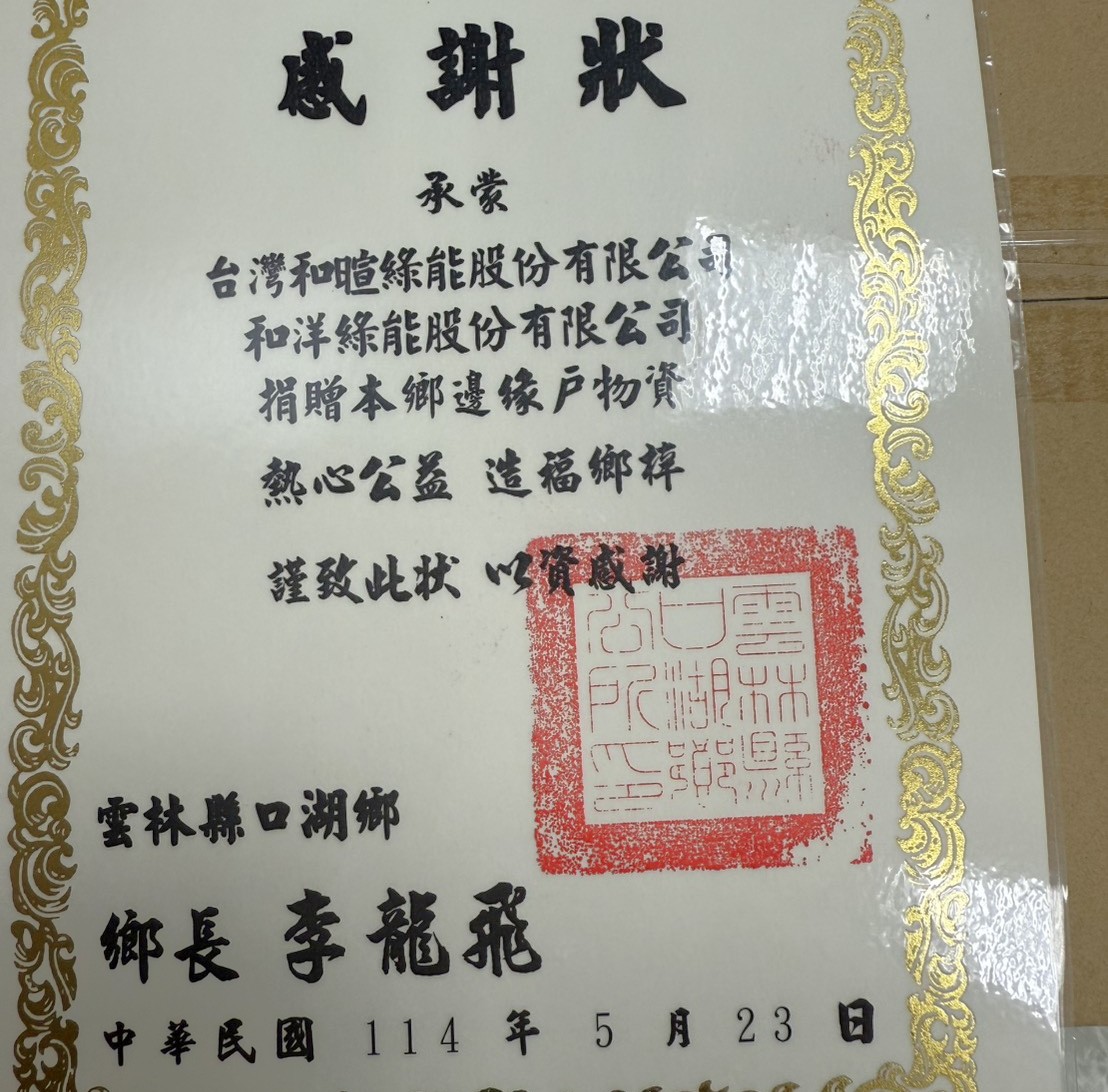 感謝狀
承蒙
台灣和暄綠能股份有限公司
和洋綠能股份有限公司
捐贈本鄉邊緣戶物資
熱心公益 造福鄉梓
謹致此狀 以資感謝
雲林縣口湖鄉公所印
雲林縣口湖鄉
鄉長 李龍飛
中華民國 114 年 5 月 23 日